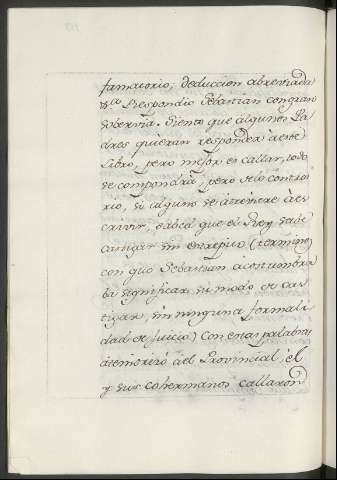 famatorio, deduccion abreviada
&c.ª Respondio Sebastian con gran
sobervia. Siento que algunos Pa-
dres quieran responder à este
Libro, pero mejor es callar, todo
se compondrà, pero de lo contra-
rio, si alguno se atreviere à es-
crivir, sabrà que el Rey sabe
castigar sin estrepito (termino
con que Sebastian acostumbra-
ba significar su modo de cas-
tigar, sin ninguna formali-
dad de Juicio) Con estas palabras
atemorizò àel Provincial, èl
y sus cohermanos callaron